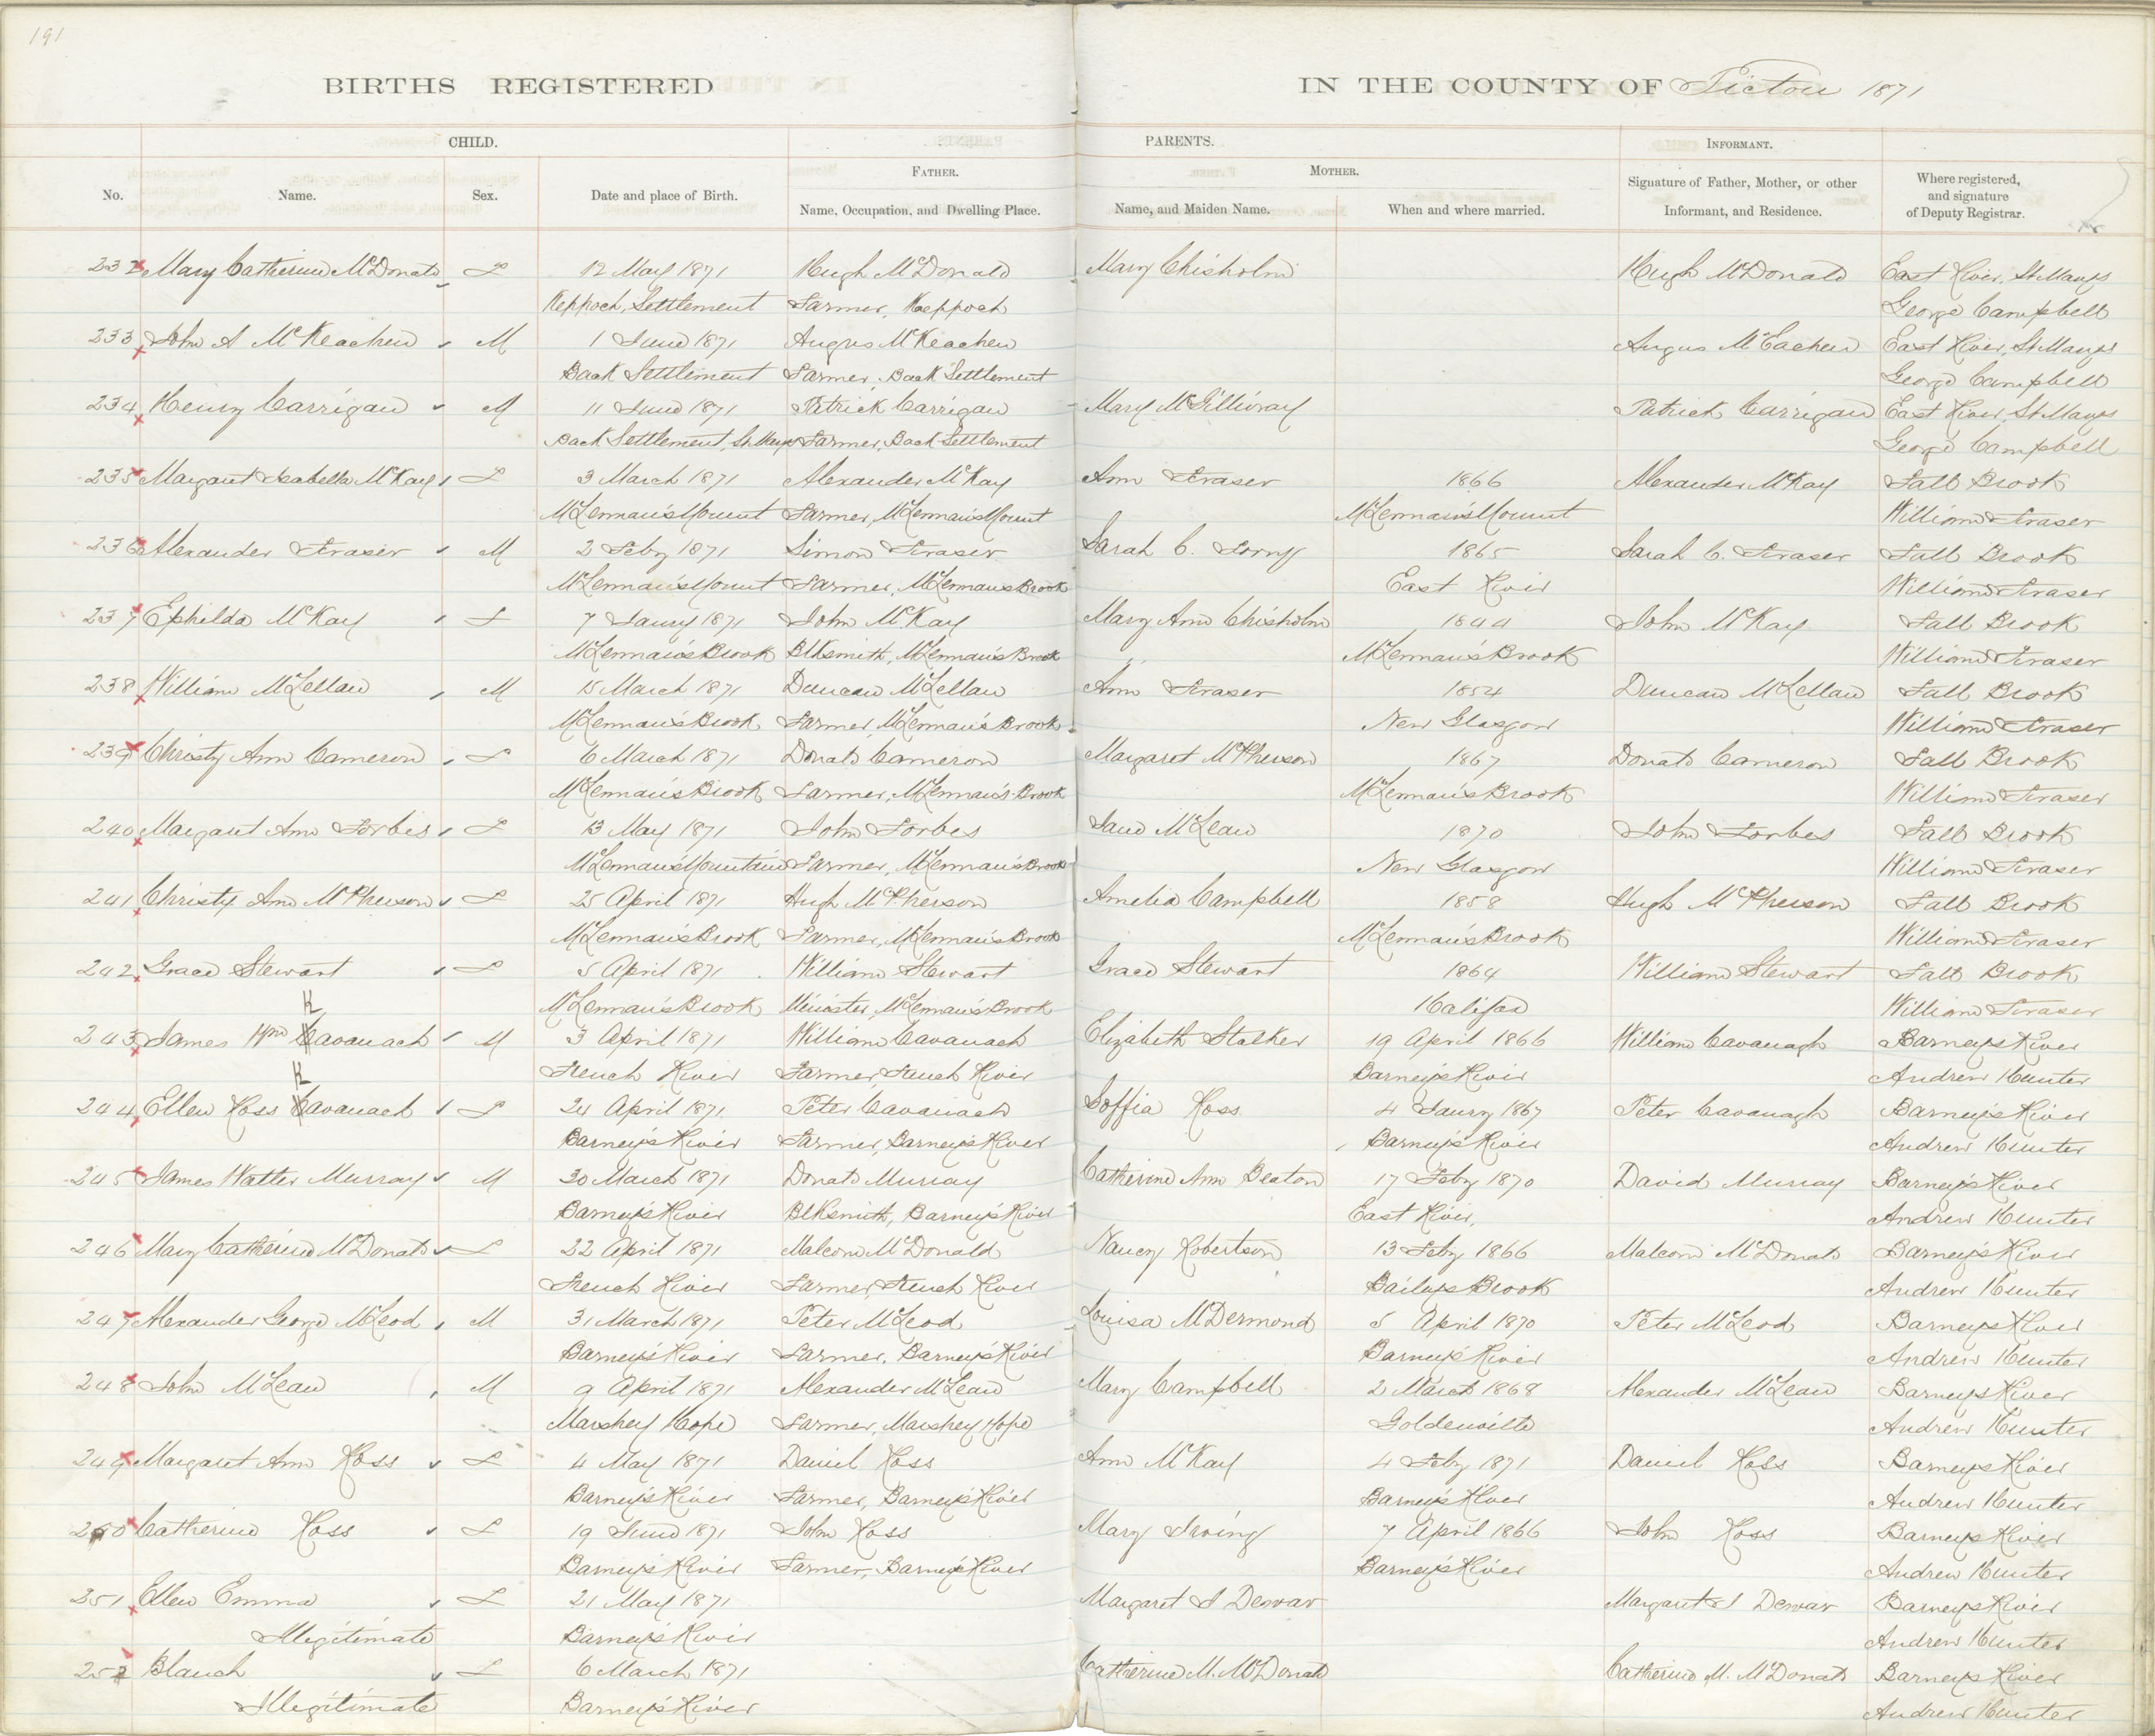 191
BIRTHS REGISTERED IN THE COUNTY OF Pictou 1871
CHILD. PARENTS. INFORMANT.
FATHER. MOTHER.
No. Name. Sex. Date and place of Birth. Name, Occupation, and Dwelling Place. Name, and Maiden Name. When and where married. Signature of Father, Mother, or other Informant, and Residence. Where registered, and signature of Deputy Registrar.
232 Mary Catherine McDonald F 12 May 1871 Hugh McDonald Mary Chisholm Hugh McDonald East River, St Marys
Keppoch, Settlement Farmer, Keppoch George Campbell
233 John A McKeachen M 1 June 1871 Angus McKeachen Angus McEachen East River, St Marys
Back Settlement Farmer, Back Settlement George Campbell
234 Henry Carrigan M 11 June 1871 Patrick Carrigan Mary McGillivray Patrick Carrigan East River, St Marys
Back Settlement, St Marys Farmer, Back Settlement George Campbell
235 Margaret Isabella McKay F 3 March 1871 Alexander McKay Ann Fraser 1866 Alexander McKay Fall Brook
McLennan's Mount Farmer, McLennan's Mount McLennan's Mount William Fraser
236 Alexander Fraser M 2 Feby 1871 Simon Fraser Sarah C. 1865 Sarah C. Fraser Fall Brook
McLennan's Mount Farmer, McLennan's Brook East River William Fraser
237 Ephilda McKay F 7 Jany 1871 John McKay Mary Ann Chisholm 1844 John McKay Fall Brook
McLennan's Brook Blksmith, McLennan's Brook McLennan's Brook William Fraser
238 William McLellan M 15 March 1871 Duncan McLellan Ann Fraser 1854 Duncan McLellan Fall Brook
McLennan's Brook Farmer, McLennan's Brook New Glasgow William Fraser
239 Christy Ann Cameron F 6 March 1871 Donald Cameron Margaret McPherson 1867 Donald Cameron Fall Brook
McLennan's Brook Farmer, McLennan's Brook McLennan's Brook William Fraser
240 Margaret Ann Forbes F 13 May 1871 John Forbes Jane McLean 1870 John Forbes Fall Brook
McLennan's Mountain Farmer, McLennan's Brook New Glasgow William Fraser
241 Christy Ann McPherson F 25 April 1871 Hugh McPherson Amelia Campbell 1858 Hugh McPherson Fall Brook
McLennan's Brook Farmer, McLennan's Brook McLennan's Brook William Fraser
242 Grace Stewart F 5 April 1871 William Stewart Grace Stewart 1864 William Stewart Fall Brook
McLennan's Brook Minister, McLennan's Brook Halifax William Fraser
K
243 James Wm Cavanach M 3 April 1871 William Cavanach Elizabeth Stalker 19 April 1866 William Cavanagh Barneys River
French River Farmer, French River Barney's River Andrew Hunter
K
244 Ellen Ross Cavanach F 24 April 1871 Peter Cavanach Soffia Ross 4 Jany 1867 Peter Cavanagh Barney's River
Barney's River Farmer, Barney's River Barney's River Andrew Hunter
245 James Walter Murray M 30 March 1871 Donald Murray Catherine Ann Beaton 17 Feby 1870 David Murray Barney's River
Barney's River Blksmith, Barney's River East River, Andrew Hunter
246 Mary Catherine McDonald F 22 April 1871 Malcom McDonald Nancy Robertson 13 Feby 1866 Malcom McDonald Barney's River
French River Farmer French River Baileys Brook Andrew Hunter
247 Alexander George McLeod M 31 March 1871 Peter McLeod Louisa McDermond 5 April 1870 Peter McLeod Barneys River
Barney's River Farmer, Barney's River Barney's River Andrew Hunter
248 John McLean M 9 April 1871 Alexander McLean Mary Campbell 2 March 1868 Alexander McLean Barneys River
Marshey Hope Farmer, Marshey Hope Goldenville Andrew Hunter
249 Margaret Ann Ross F 4 May 1871 Daniel Ross Ann McKay 4 Feby 1871 Daniel Ross Barneys River
Barney's River Farmer, Barney's River Barney's River Andrew Hunter
250 Catherine Ross F 19 June 1871 John Ross Mary Irving 7 April 1866 John Ross Barneys River
Barney's River Farmer, Barney's River Barney's River Andrew Hunter
251 Ellen Emma F 21 May 1871 Margaret I Dewar Margaret I Dewar Barneys River
Illegitimate Barney's River Andrew Hunter
252 Blanch F 6 March 1871 Catherine M. McDonald Catherine M. McDonald Barneys River
Illegitimate Barney's River Andrew Hunter